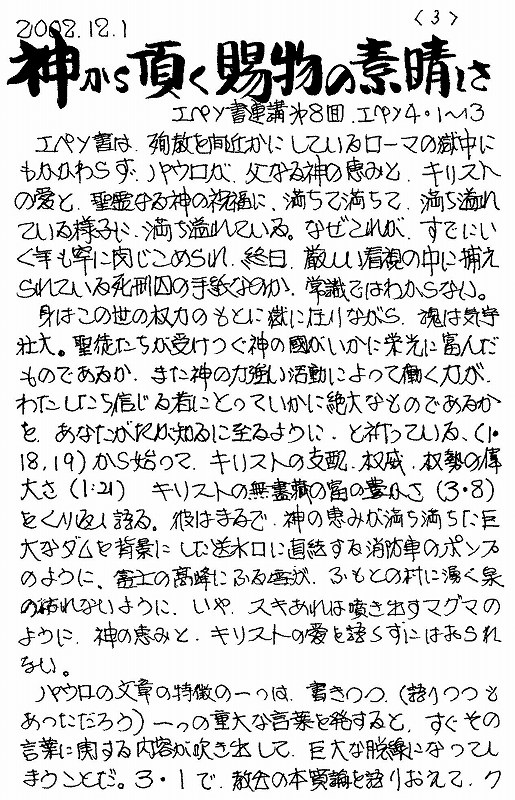 2002.12.1
<3>
神から頂く賜物の素晴しさ
エペソ書連講才8回 エペソ4・1〜13
エペソ書は、殉教を間近かにしているローマの獄中に
もかかわらず、パウロが、父なる神の恵みと、キリスト
の愛と、聖霊なる神の祝福に、満ちて満ちて、満ち溢れ
ている様子に、満ち溢れている。なぜこれが、すでにい
く年も牢に閉じこめられ、終日、厳しい看視の中に捕え
られている死刑囚の手紙なのか、常識ではわからない。
身はこの世の权力のもとに獄に在りながら、魂は気宇
壮大。聖徒たちが受けつぐ神の國がいかに栄光に富んだ
ものであるか、また神の力強い活動によって働く力が、
わたしたち信じる者にとっていかに絶大なものであるか
を、あなたがたが知るに至るように、と祈っている、(1・
18,19)から始って、キリストの支配、权威、权勢の偉
大さ(1:21) キリストの無尽蔵の富の豊かさ(3・8)
をくり返し語る。彼はまるで、神の恵みが満ち満ちた巨
大なダムを背景にした送水口に直結する消防車のポンプ
のように、富士の高峰にふる雪が、ふもとの村に湧く泉
の枯れないように、いや、スキあれば噴き出すマグマの
ように、神の恵みと、キリストの愛を語らずにはおられ
ない。
パウロの文章の特徴の一つは、書きつつ、(語りつつも
あっただろう)一つの重大な言葉を発すると、すぐその
言葉に関する内容が吹き出して、巨大な脱線になってし
まうことだ。3・1で、教会の本質論を語りおえて、ク